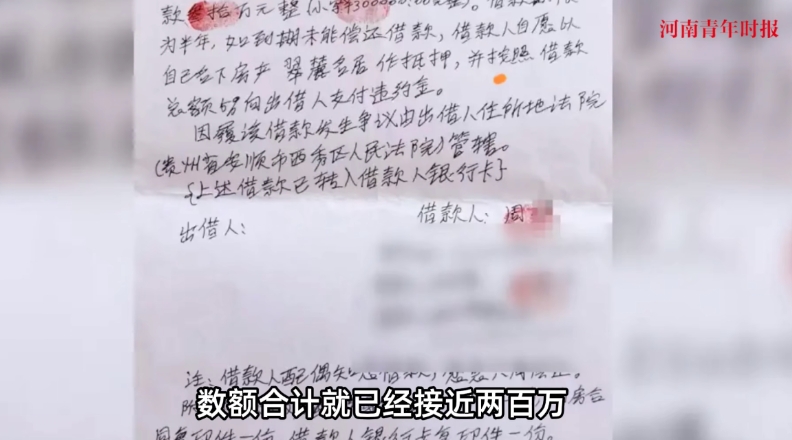 河南青年时报
款叁拾万元整(小写¥300000.00元整)。借款
为半年,如到期未能偿还借款,借款人自愿以
自己名下房产 翠麓名居 作抵押,并按照 借款
总额 向出借人支付违约金。
因履该借款发生争议由出借人住所地法院
(贵州省安顺市西秀区人民法院)管辖。
{上述借款已转入借款人银行卡}
借款人:周
出借人:
注:借款人配偶知 借款,
附
数额合计就已经接近两百万
房台
复印件一份,借款人银行卡复印件一份。